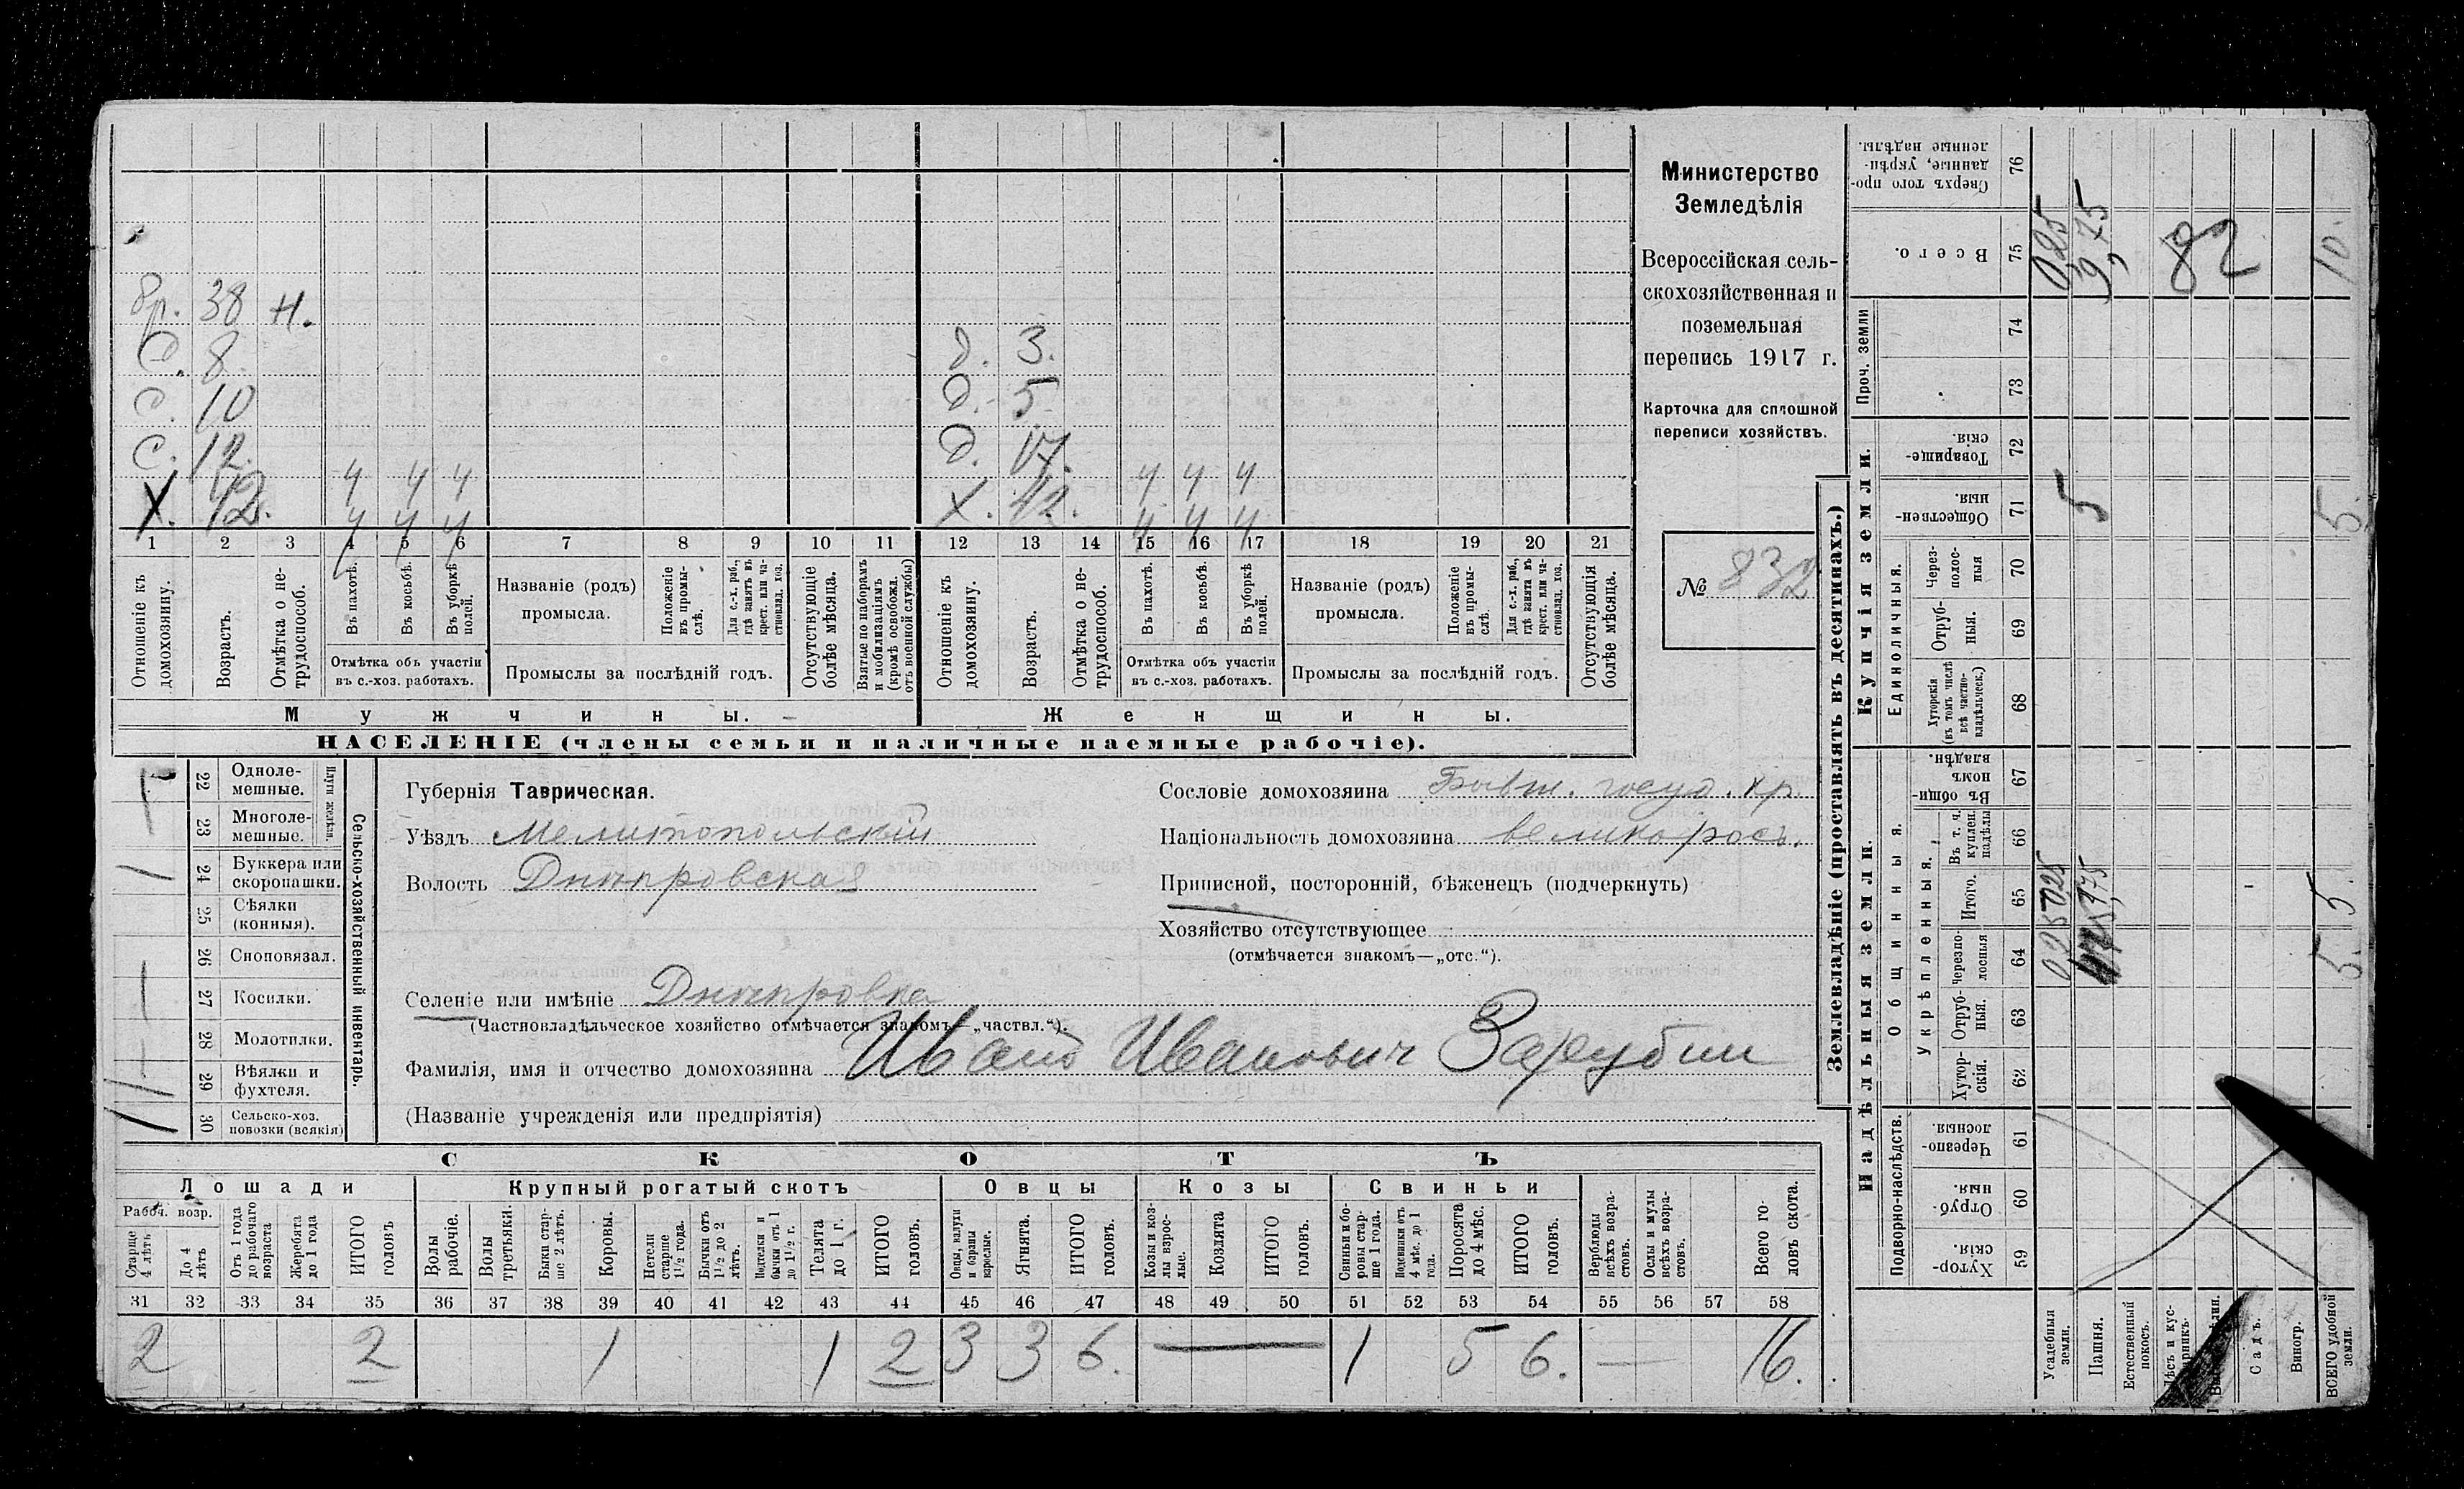 бр. 38 н.
С. 8.
С. 10
С. 12.
Х. 42. ч ч ч
д. 3.
д. 5.
д. 17. ч ч ч
х. 42. ч ч ч
1 2 3 4 5 6 7 8 9 10 11 12 13 14 15 16 17 18 19 20 21
Отношеніе къ домохозяину.
Возрастъ.
Отмѣтка о не-трудоспособ.
Въ пахотѣ.
Въ косьбѣ.
Въ уборкѣ полей.
Отмѣтка объ участіи
въ с.-хоз. работахъ.
Названіе (родъ)
промысла.
Положеніе въ промы-слѣ.
Для с.-х. раб., гдѣ занятъ въ крест. или ча-стновлад. хоз.
Промыслы за послѣдній годъ.
Отсутствующіе болѣе мѣсяца.
Взятые по наборамъ и мобилизаціямъ (кромѣ освобожд. отъ военной службы)
Отношеніе къ домохозяину.
Возрастъ.
Отмѣтка о не-трудоспособ.
Въ пахотѣ.
Въ косьбѣ.
Въ уборкѣ полей.
Отмѣтка объ участіи
въ с.-хоз. работахъ.
Названіе (родъ)
промысла.
Положеніе въ промы-слѣ.
Для с.-х. раб., гдѣ занятъ въ крест. или ча-стновлад. хоз.
Промыслы за послѣдній годъ.
Отсутствующія болѣе мѣсяца.
Мужчины. Женщины.
НАСЕЛЕНІЕ (члены семьи и наличные наемные рабочіе).
Министерство
Земледѣлія
Всероссійская сель-
скохозяйственная и
поземельная
перепись 1917 г.
Карточка для сплошной
переписи хозяйствъ.
№ 832
Сельско-хозяйственный инвентарь.
Плуги желѣзн.
22 Одноле-
мешные.
23 Многоле-
мешные.
24 Буккера или
скоропашки.
25 Сѣялки
(конныя).
26 Сноповязал.
27 Косилки.
28 Молотилки.
29 Вѣялки и
фухтеля.
30 Сельско-хоз.
повозки (всякія)
Губернія Таврическая.
Уѣздъ Мелитопольскій
Волость Днѣпровская
Селеніе или имѣніе Днѣпровка
(Частновладѣльческое хозяйство отмѣчается знакомъ—„частвл.“).
Фамилія, имя и отчество домохозяина Иванъ Иванович Зарубин
(Названіе учрежденія или предпріятія)
Сословіе домохозяина Бывш. госуд. кр.
Національность домохозяина великорос.
Приписной, посторонній, бѣженецъ (подчеркнуть)
Хозяйство отсутствующее
(отмѣчается знакомъ—„отс.“).
СКОТЪ
Лошади Крупный рогатый скотъ Овцы Козы Свиньи
Рабоч. возр.
Старше 4 лѣтъ
До 4 лѣтъ
Отъ 1 года до рабочаго возраста
Жеребята до 1 года
ИТОГО головъ
Волы рабочіе.
Волы третьяки.
Быки стар-ше 2 лѣтъ.
Коровы.
Нетели старше 1½ года.
Бычки отъ 1½ до 2 лѣтъ.
Подтелки и бычки отъ 1 до 1½ г.
Телята до 1 г.
ИТОГО головъ.
Овцы, валухи и бараны взрослые.
Ягнята.
ИТОГО головъ.
Козы и коз-лы взрос-лые.
Козлята
ИТОГО головъ.
Свиньи и бо-ровы стар-ше 1 года.
Подсвинки отъ 4 мѣс. до 1 года.
Поросята до 4 мѣс.
ИТОГО головъ.
Верблюды всѣхъ возра-стовъ.
Ослы и мулы всѣхъ возра-стовъ.
Всего го-ловъ скота.
31 32 33 34 35 36 37 38 39 40 41 42 43 44 45 46 47 48 49 50 51 52 53 54 55 56 57 58
2 2 1 1 2 3 3 6. — 1 5 6. — 16.
Землевладѣніе (проставлять въ десятинахъ.)
Надѣльныя земли.
Купчія земли.
Проч. земли
Подворно-наслѣдств.
Общинныя.
Укрѣпленныя.
Единоличныя.
59 Хутор-скія.
60 Отруб-ныя.
61 Черезпо-лосныя.
62 Хутор-скія.
63 Отруб-ныя.
64 Черезпо-лосныя
65 Итого.
66 Въ т. ч. куплен. надѣлы
67 Въ общи-номъ владѣн.
68 Хуторскія (въ томъ числѣ всѣ частно-владѣльческ.)
69 Отруб-ныя.
70 Через-полос-ныя
71 Обществен-ныя
72 Товарище-скія.
73
74
75 Всего.
76 Сверхъ того про-данные, укрѣп-ленные надѣлы.
Усадебныя земли.
Пашня.
Естественный покосъ.
Садъ.
Виногр.
ВСЕГО удобной земли.
025 025
4,75
5. 5.
5 5.
025
9,75
82
10.